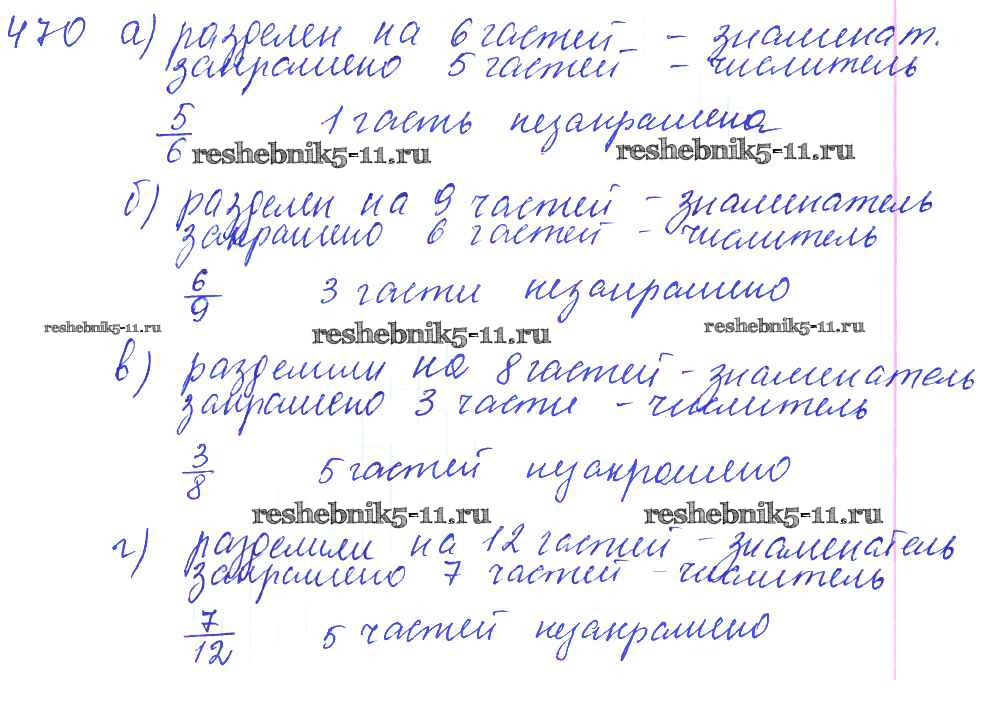 470 а) разделен на 6 частей - знаменат.
закрашено 5 частей - числитель
5/6 1 часть незакрашена
reshebnik5-11.ru reshebnik5-11.ru
б) разделен на 9 частей - знаменатель
закрашено 6 частей - числитель
6/9 3 части незакрашено
reshebnik5-11.ru reshebnik5-11.ru reshebnik5-11.ru
в) разделили на 8 частей - знаменатель
закрашено 3 части - числитель
3/8 5 частей незакрашено
reshebnik5-11.ru reshebnik5-11.ru
г) разделили на 12 частей - знаменатель
закрашено 7 частей - числитель
7/12 5 частей незакрашено